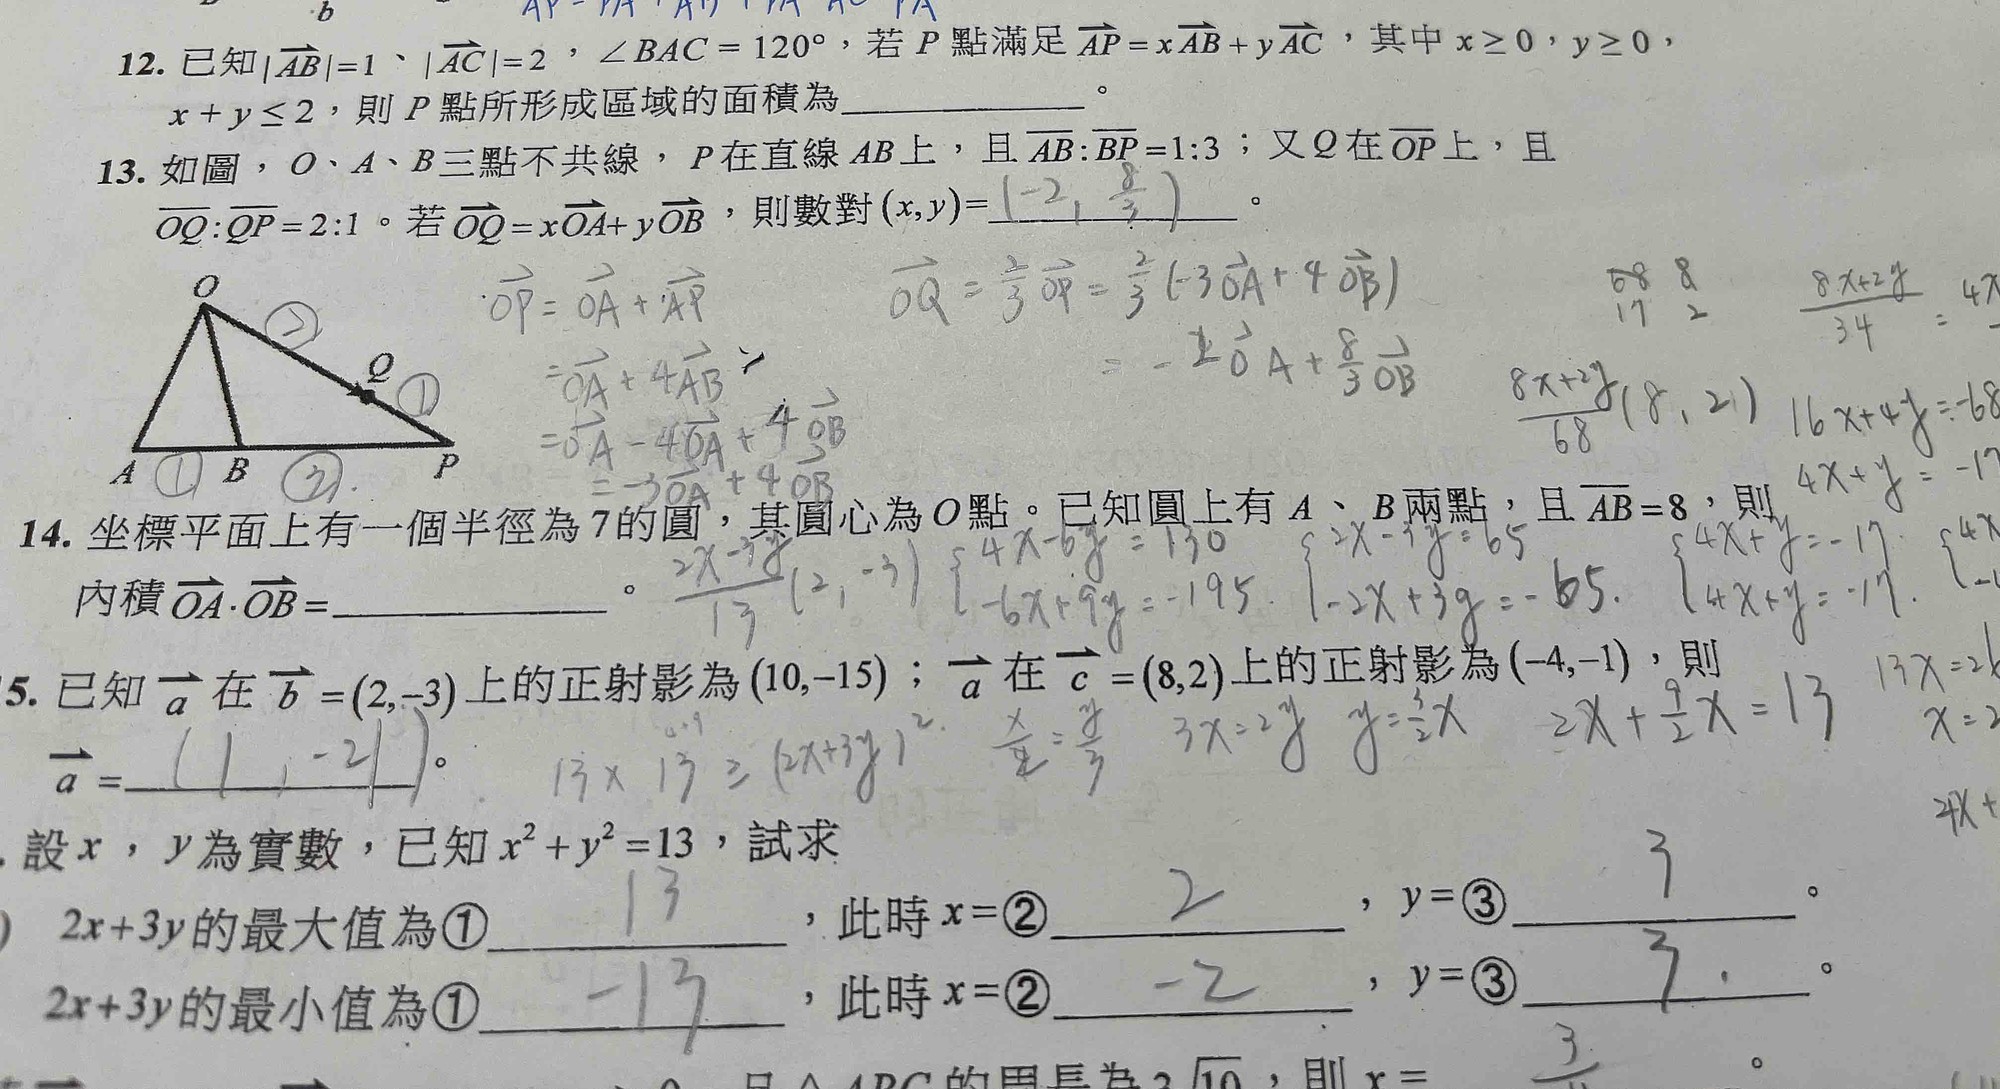 b
12. 已知|AB|=1、|AC|=2,∠BAC=120°,若P點滿足AP=xAB+yAC,其中x≥0,y≥0,
x+y≤2,則P點所形成區域的面積為____________。
13. 如圖,O、A、B三點不共線,P在直線AB上,且AB:BP=1:3;又Q在OP上,且
OQ:QP=2:1。若OQ=xOA+yOB,則數對(x,y)=(-2, 8/3)。
O
Q
A B P
② ①
①
OP=OA+AP
=OA+4AB
=OA-4OA+4OB
=-3OA+4OB
OQ=2/3OP=2/3(-3OA+4OB)
=-2OA+8/3OB
68 8
17 2
8x+2y/34 = 4x
8x+2y/68 (8, 2)
16x+4y=-68
4x+y=-17
14. 坐標平面上有一個半徑為7的圓,其圓心為O點。已知圓上有A、B兩點,且AB=8,則
內積OA·OB=____________。
2x-3y/13 (2, -3)
{4x-6y=130
-6x+9y=-195.
{2x-3y=65
-2x+3y=-65.
{4x+y=-17.
4x+y=-17.
5. 已知a在b=(2,-3)上的正射影為(10,-15);a在c=(8,2)上的正射影為(-4,-1),則
a=(1, -21)。
13×13≥(2x+3y)²
x/2=y/3
3x=2y y=3/2x
2x+9/2x=13
13x=26
x=2
. 設x,y為實數,已知x²+y²=13,試求
) 2x+3y的最大值為①13,此時x=②2,y=③3。
2x+3y的最小值為①-13,此時x=②-2,y=③3.。
ABC的周長為3√10,則x=